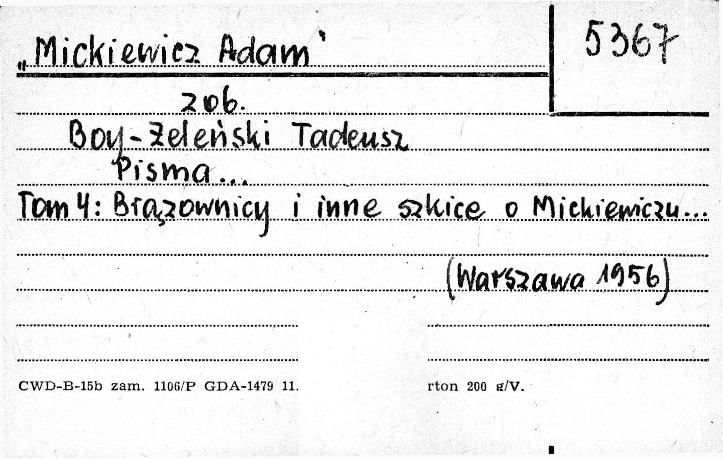 „Mickiewicz Adam"
5367
zob.
Boy-Żeleński Tadeusz
Pisma...
Tom 4: Brązownicy i inne szkice o Mickiewiczu...
(Warszawa 1956)
CWD-B-15b zam. 1106/P GDA-1479 11. rton 200 g/V.